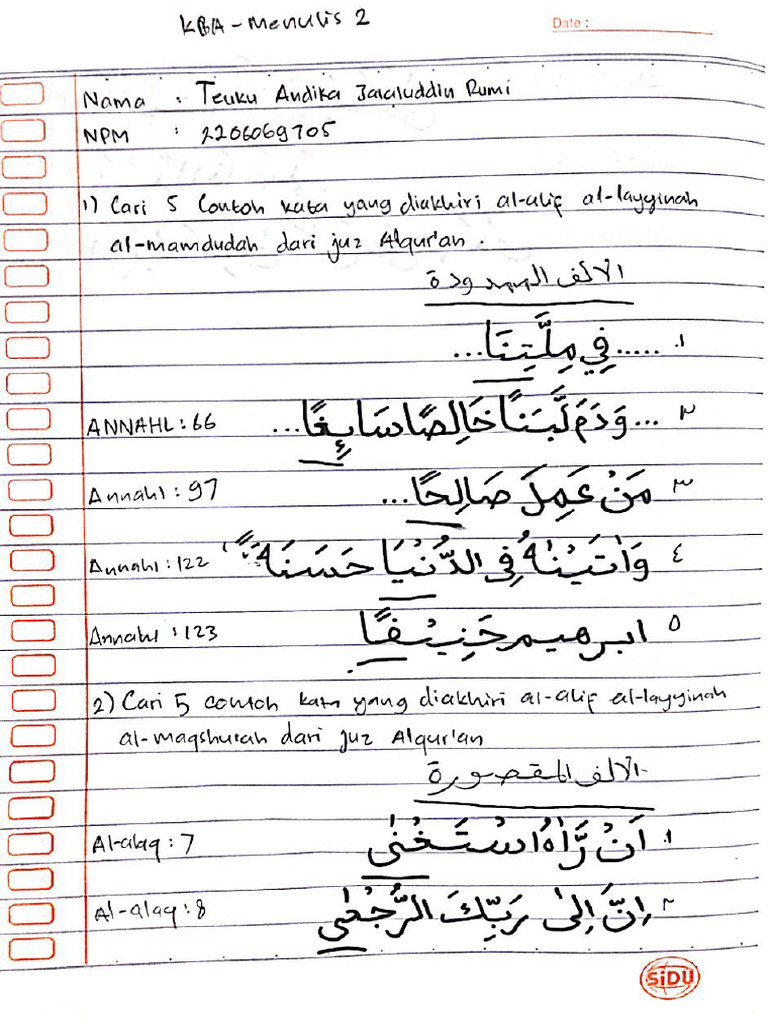 KBA - Menulis 2
Date :
Nama : Teuku Andika Jalaluddin Rumi
NPM : 2206069705
1) Cari 5 Contoh kata yang diakhiri al-alif al-layyinah
al-mamdudah dari juz Alqur'an.
الالف الممدودة
١. .....فِي مِلَّتِنَا...
ANNAHL : 66 ٢ ...وَدَمَ لَّبَنًا خَالِصًا سَائِغًا...
Annahl : 97 ٣ مَنْ عَمِلَ صَالِحًا...
Annahl : 122 ٤ وَاٰتَيْنٰهُ فِى الدُّنْيَا حَسَنَةً
Annahl : 123 ٥ ابرهيم حَنِيْفًا
2) Cari 5 contoh kata yang diakhiri al-alif al-layyinah
al-maqshurah dari juz Alqur'an
الالف المقصورة
Al-alaq : 7 ١. اَنْ رَّاٰهُ اسْتَغْنٰى
Al-alaq : 8 ٢ اِنَّ اِلٰى رَبِّكَ الرُّجْعٰى
SiDU